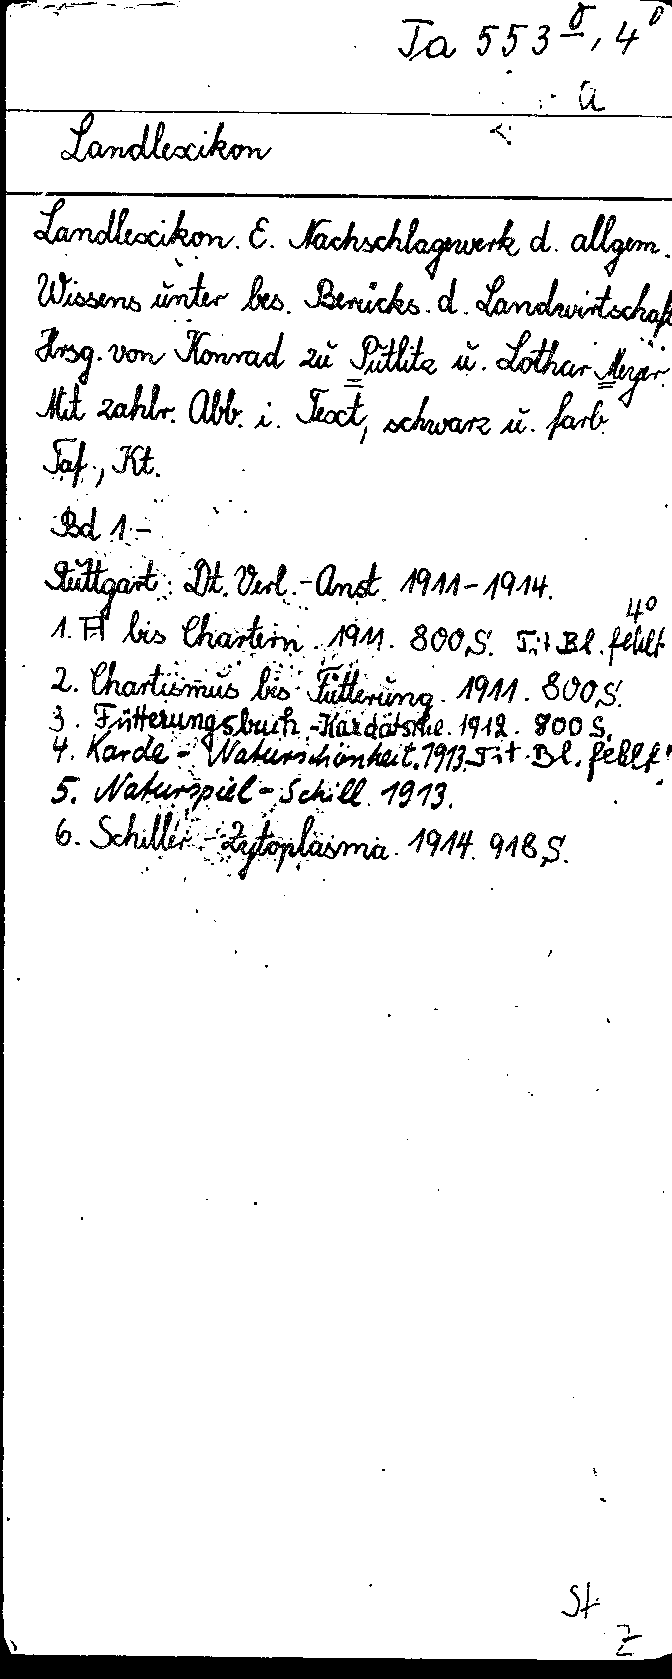 Ta 553 8, 4°
a
Landlexikon
Landlexikon. E. Nachschlagewerk d. allgem.
Wissens unter bes. Berücks. d. Landwirtschaf
Hrsg. von Konrad zu Putlitz u. Lothar Meyer.
Mit zahlr. Abb. i. Text, schwarz u. farb.
Taf., Kt.
Bd 1.-
Stuttgart: Dt. Verl.-Anst. 1911-1914.
4°
1. A bis Chartern. 1911. 800 S. Tit. Bl. fehlt
2. Chartismus bis Fütterung. 1911. 800 S.
3. Fütterungsbuch-Kardätsche. 1912. 800 S.
4. Karde - Naturschönheit. 1913. Tit. Bl. fehlt!
5. Naturspiel - Schill. 1913.
6. Schiller - Zytoplasma. 1914. 918 S.
St
Z